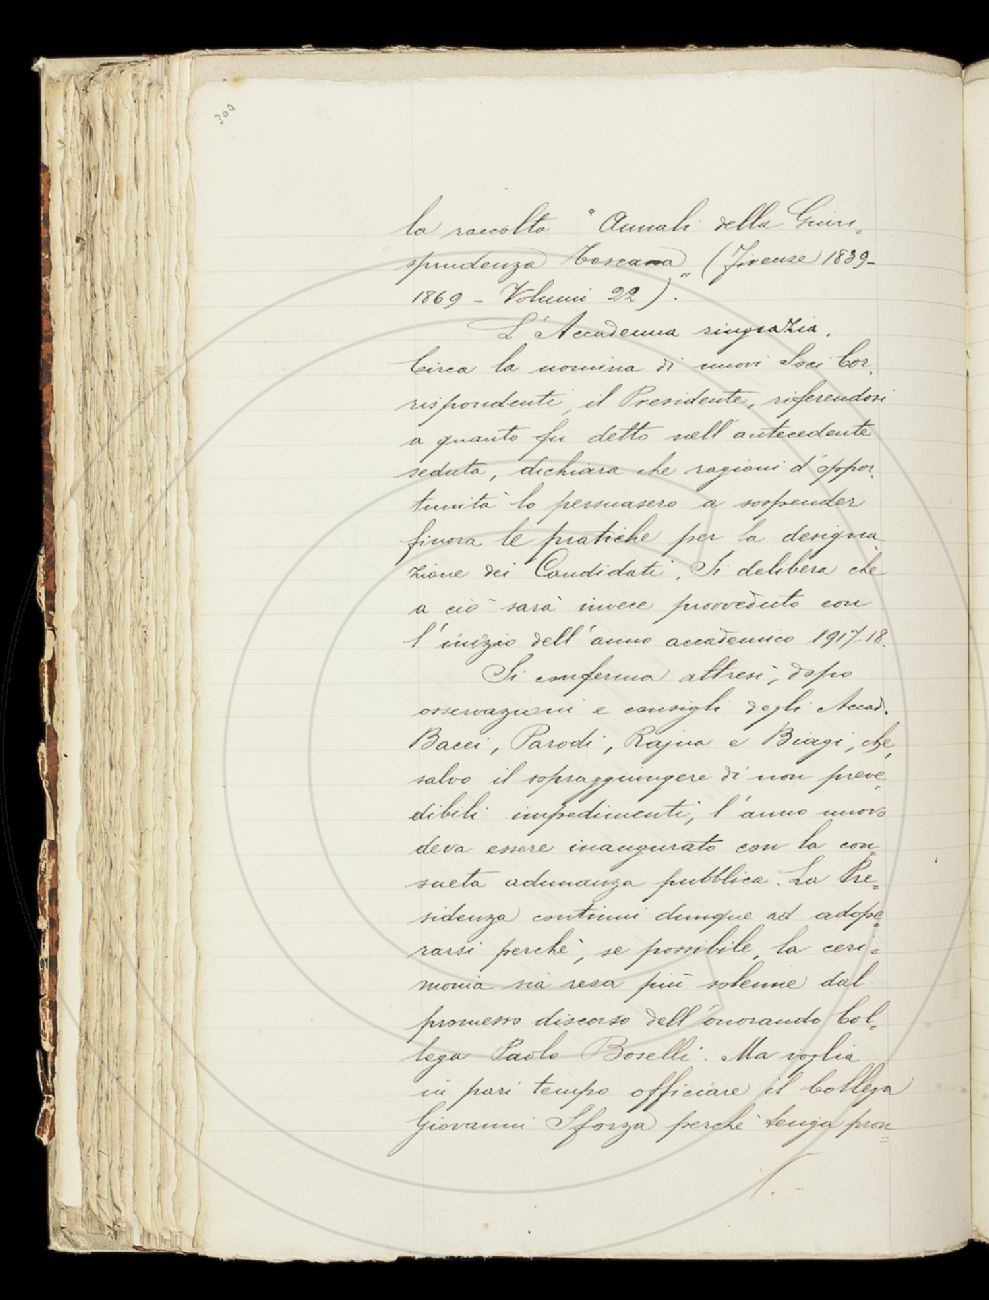 300
la raccolta "Annali della Giuri=
sprudenza Toscana" (Firenze 1839-
1869 - Volumi 22).
L'Accademia ringrazia.
Circa la nomina di nuovi Soci Cor.
rispondenti, il Presidente, riferendosi
a quanto fu detto nell'antecedente
seduta, dichiara che ragioni d'oppor.
tunità lo persuasero a sospender
finora le pratiche per la designa
zione dei Candidati. Si delibera che
a ciò sarà invece provveduto con
l'inizio dell'anno accademico 1917-18.
Si conferma altresì, dopo
osservazioni e consigli degli Accad.
Bacci, Parodi, Rajna e Biagi, che,
salvo il sopraggiungere di non preve=
dibili impedimenti, l'anno nuovo
deva essere inaugurato con la con=
sueta adunanza pubblica. La Pre=
sidenza continui dunque ad adope=
rarsi perchè, se possibile, la ceri=
monia sia resa più solenne dal
promesso discorso dell'onorando Col=
lega Paolo Boselli. Ma voglia
in pari tempo officiare il Collega
Giovanni Sforza perchè tenga pron=